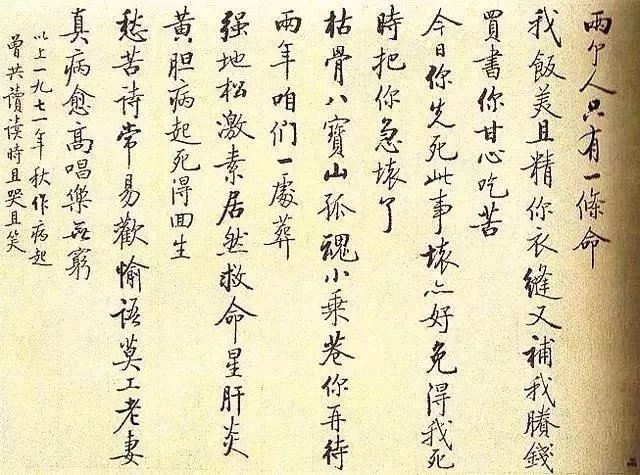 兩个人只有一條命
我飯美且精你衣縫又補我賸錢
買書你甘心吃苦
今日你先死此事壞亦好免得我死
時把你急壞了
枯骨八寶山孤魂小乘巷你再待
兩年咱們一處葬
强地松激素居然救命星肝炎
黄胆病起死得回生
愁苦詩常易歡愉語莫工老妻
真病愈高唱樂無窮
以上一九七一年秋作病起
曾共讀讀時且哭且笑